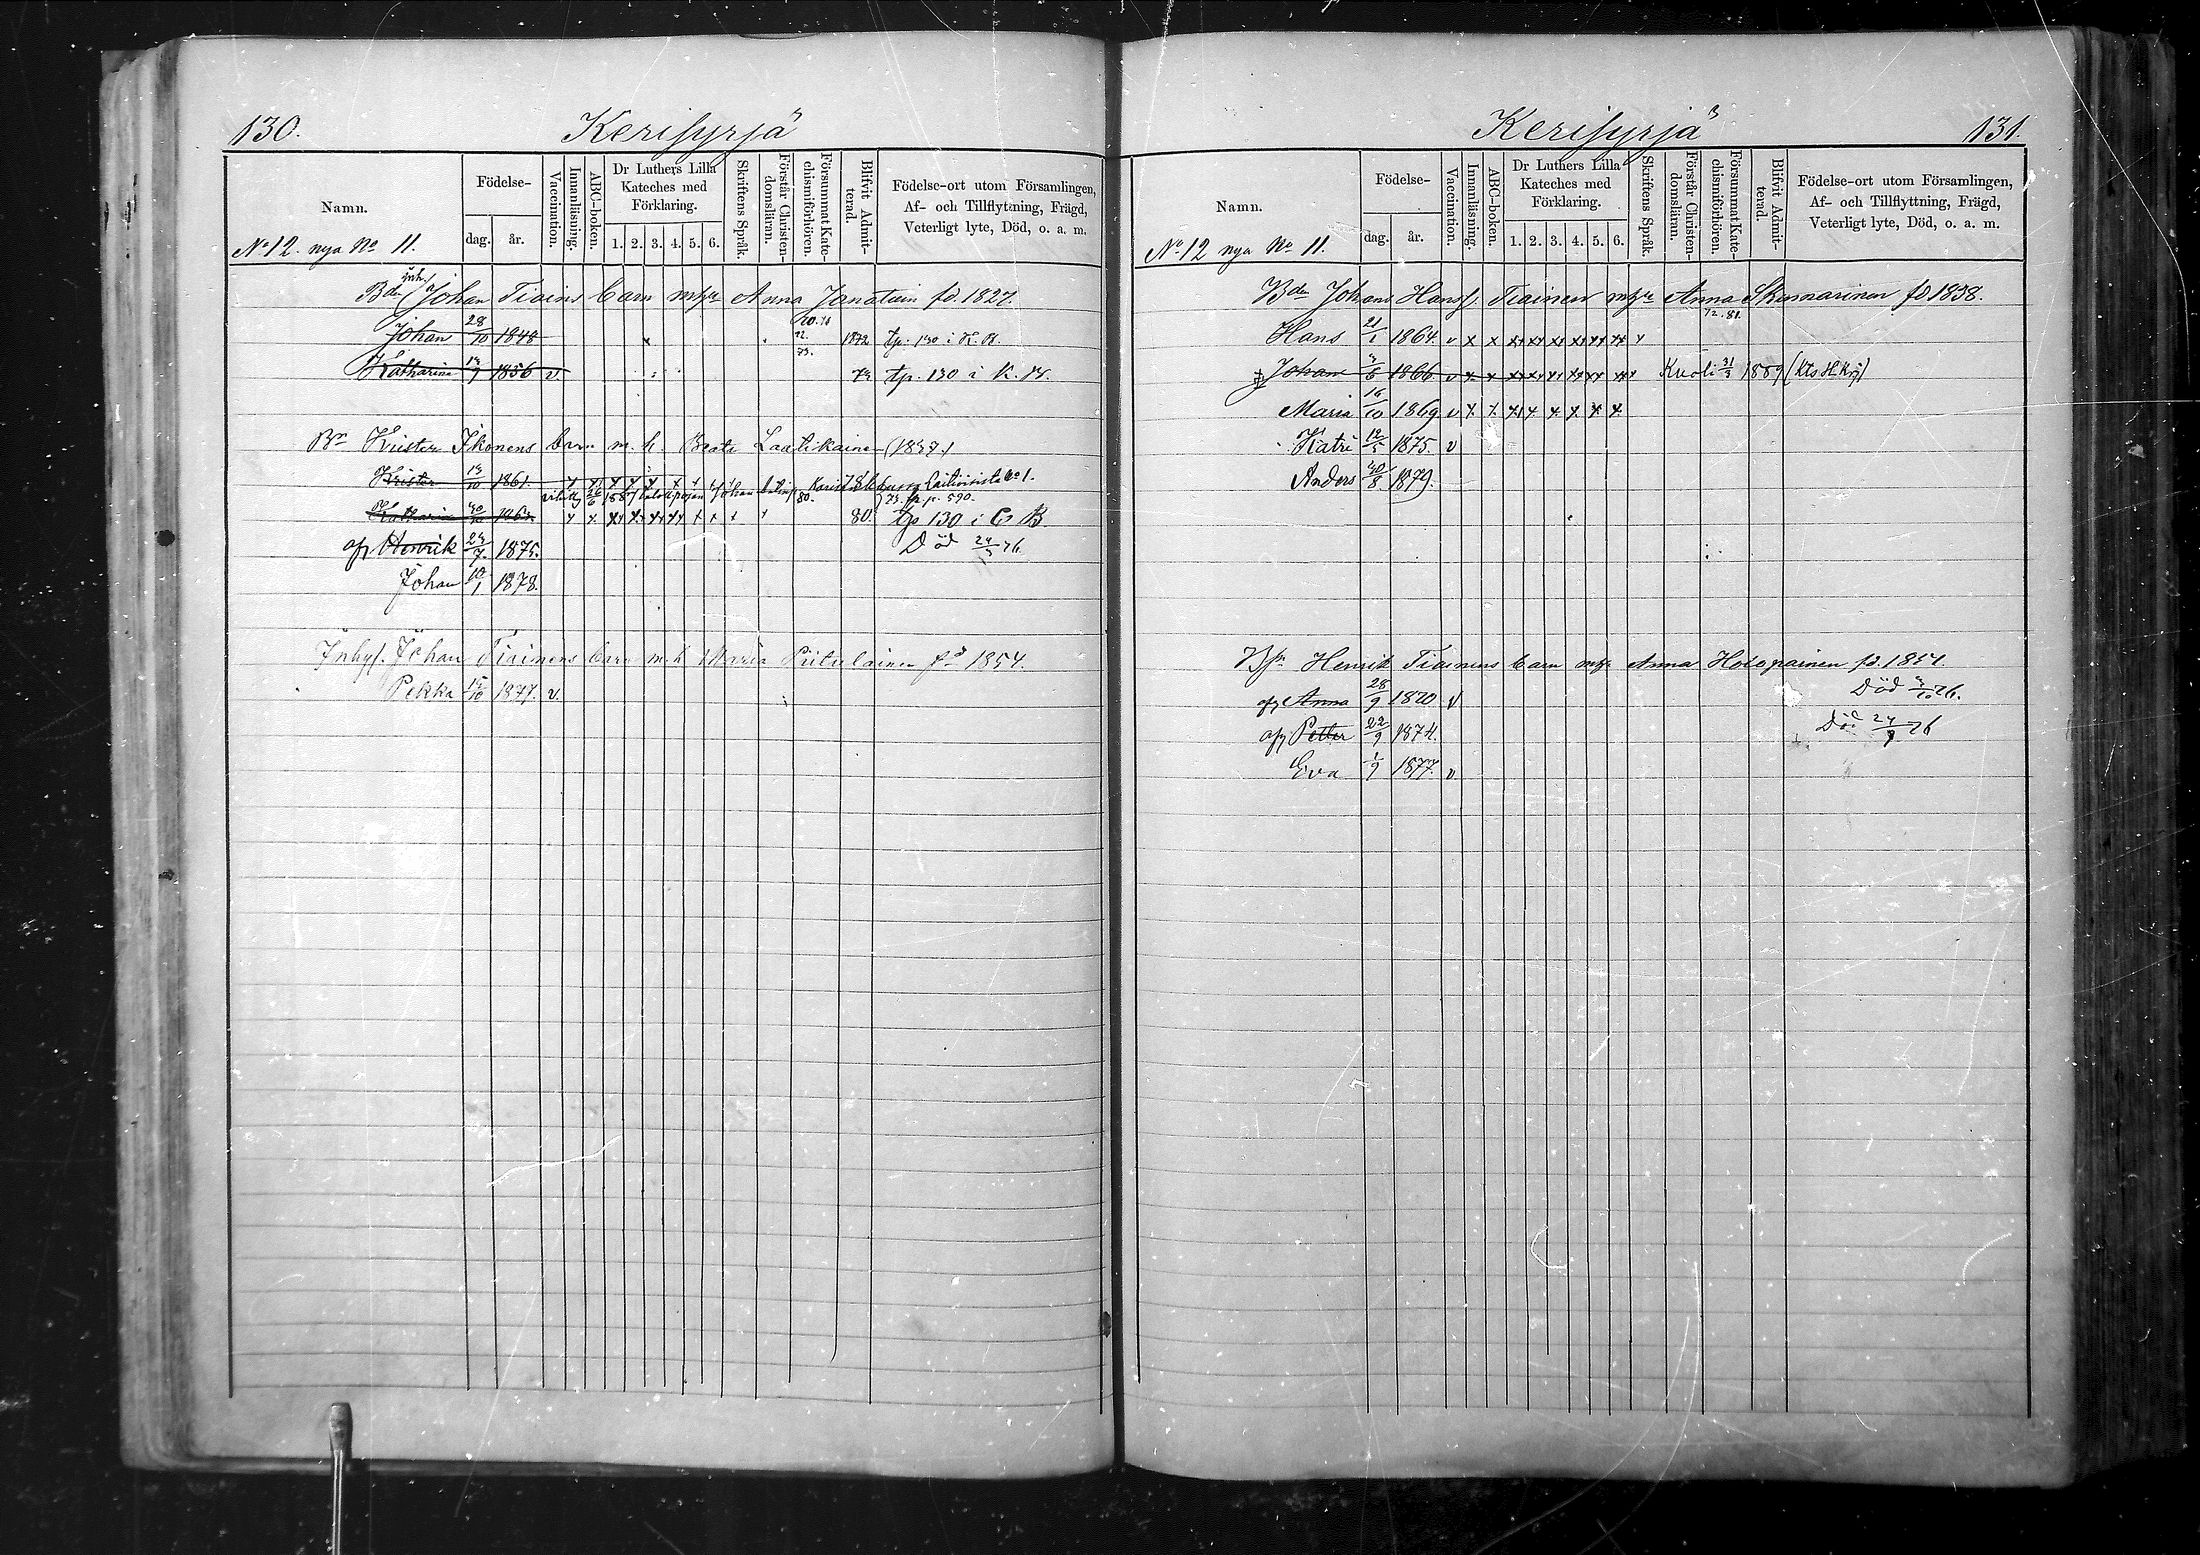 130.
Kerisyrjä
Namn.
Födelse-
dag.
år.
Vaccination.
Innanläsning.
ABC-boken.
Dr Luthers Lilla
Kateches med
Förklaring.
1. 2. 3. 4. 5. 6.
Skriftens Språk.
Förstår Christen-
domsläran.
Försummat Kate-
chismiförhören.
Blifvit Admit-
terad.
Födelse-ort utom Församlingen,
Af- och Tillflyttning, Frägd,
Veterligt lyte, Död, o. a. m.
No 12. nya No 11.
inh.
Bdn Johan Tiains barn m hu Anna Janatuin fd. 1827.
Johan 28/10 1848 1872 tp. 130 i K. B.
Katharina 13/9 1856 v. tp. 130 i K. B.
Bn Krister Ikonens barn m. h. Beata Laatikainen (1837)
Krister 13/10 1861.
1887
73. tp p. 590.
Katharina 80. tp 130 i C B
Henrik 24/7. 1875. Död 76
Johan 10/1 1878.
Inhys. Johan Tiainens barn m. h Maria Piitulainen fd 1854.
Pekka 15/10 1877. v.
131.
Kerisyrjä
Namn.
Födelse-
dag.
år.
Vaccination.
Innanläsning.
ABC-boken.
Dr Luthers Lilla
Kateches med
Förklaring.
1. 2. 3. 4. 5. 6.
Skriftens Språk.
Förstår Christen-
domsläran.
Försummat Kate-
chismiförhören.
Blifvit Admit-
terad.
Födelse-ort utom Församlingen,
Af- och Tillflyttning, Frägd,
Veterligt lyte, Död, o. a. m.
No 12 nya No 11.
Bdn Johans Hanss. Tiainen m hu Anna Skinnarinen fd 1838.
Hans 21/1 1864. v x x
Johan 1866 v Kuoli 31/3 1889
Maria 16/10 1869 v x x
Katri 12/5 1875. v
Anders 30/8 1879.
Henrik Tiainens barn m hu Anna Holopainen fd. 1851.
Anna 28/9 1870 v Död 3/10 76.
Petter 22/9 1874. Död 76
Eva 1/9 1877. v